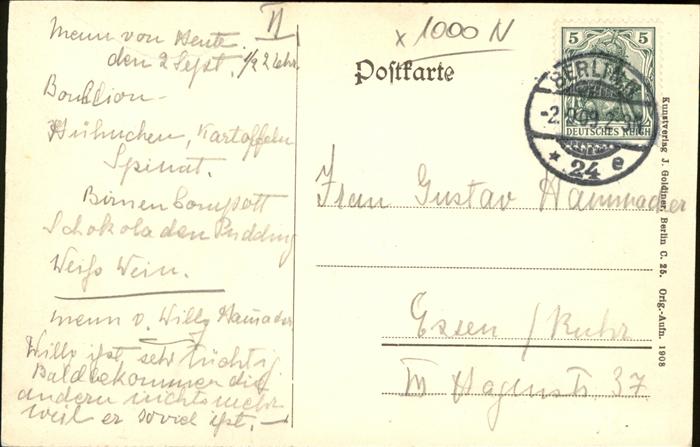 II
Menu von Heute.
den 2 Sept. 1/2 2 Uhr.
Bouillion -
Hühnchen, Kartoffeln
Spinat.
Birnen Compott
Schokoladen Pudding
Weiss Wein.
menu v. Willy Hamacher
Willy isst sehr tüchtig
Bald bekommen die
andern nichts mehr
weil er so viel isst. -
x 1000 N
Postkarte
5 5
DEUTSCHES REICH
BERLIN
-2.9.09.2-3N
* 24 e
Frau Gustav Hammacher
Essen / Ruhr
Hagenstr. 37.
Kunstverlag J. Goldiner, Berlin C. 25. Orig.-Aufn. 1908